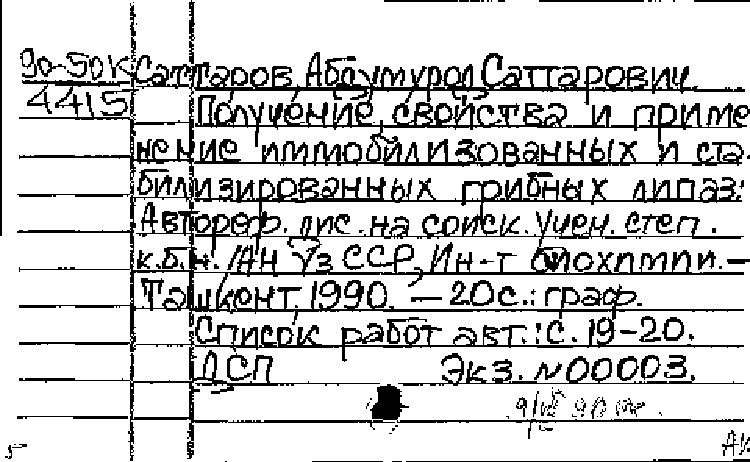 90-50к Саттаров, Абдумурол Саттарович
4415 Получение, свойства и приме
нение иммобилизованных и ста-
билизированных грибных липаз:
Автореф. дис. на соиск. учен. степ.
к.б.н. /АН УзССР, Ин-т биохимии. —
Ташкент, 1990. — 20с.: граф.
Список работ авт.: с. 19-20.
ДСП Экз. №00003.